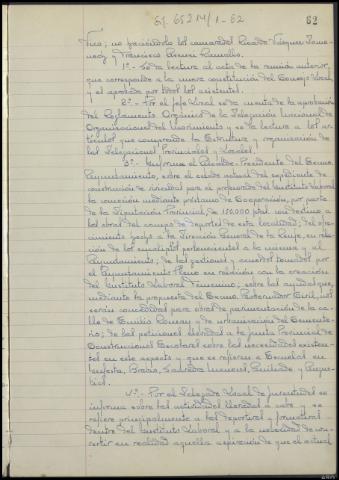 62
Vivo; no pasándolo los camaradas Ricardo Vázquez
y Francisco
1º.- Se da lectura al acta de la reunión anterior,
que corresponde a la nueva constitución del Consejo Local,
y es aprobada por todos los asistentes.
2º.- Por el Jefe Local se da cuenta de la aprobación
del Reglamento Orgánico de la Delegación Nacional de
Organizaciones del Movimiento y se da lectura a los ar-
tículos que comprenden la Estructura y organización de
las Delegaciones Provinciales y Locales.
3º.- Informa el Alcalde-Presidente del Excmo.
Ayuntamiento, sobre el estado actual del expediente de
construcción de viviendas para el profesorado del Instituto Laboral
la concesión mediante préstamo de Cooperación, por parte
de la Diputación Provincial, de 150.000 ptas. con destino a
las obras del campo de deportes de esta localidad; del ofre-
cimiento hecho a la Dirección General de la Ruja, en rela-
ción de los eucaliptos pertenecientes a la misma y al
Ayuntamiento; de las gestiones y acuerdos tomados por
el Ayuntamiento Pleno en relación con la creación
del Instituto Laboral Femenino; sobre las ayudas que,
mediante la propuesta del Excmo. Gobernador Civil, nos
serán concedidas para obras de pavimentación de la ca-
lle de Emilio y de urbanización del Cementerio
rio; de las peticiones elevadas a la Junta Provincial de
Construcciones Escolares sobre las necesidades existen-
tes en este aspecto y que se refieren a Escuelas en
Brañas,
4º.- Por el Delegado Local de Juventudes se
informa sobre las actividades llevadas a cabo y se
refiere principalmente a las deportivas y formativas
dentro del Instituto Laboral y a la necesidad de con-
vertir en realidad aquella aspiración de que el actual